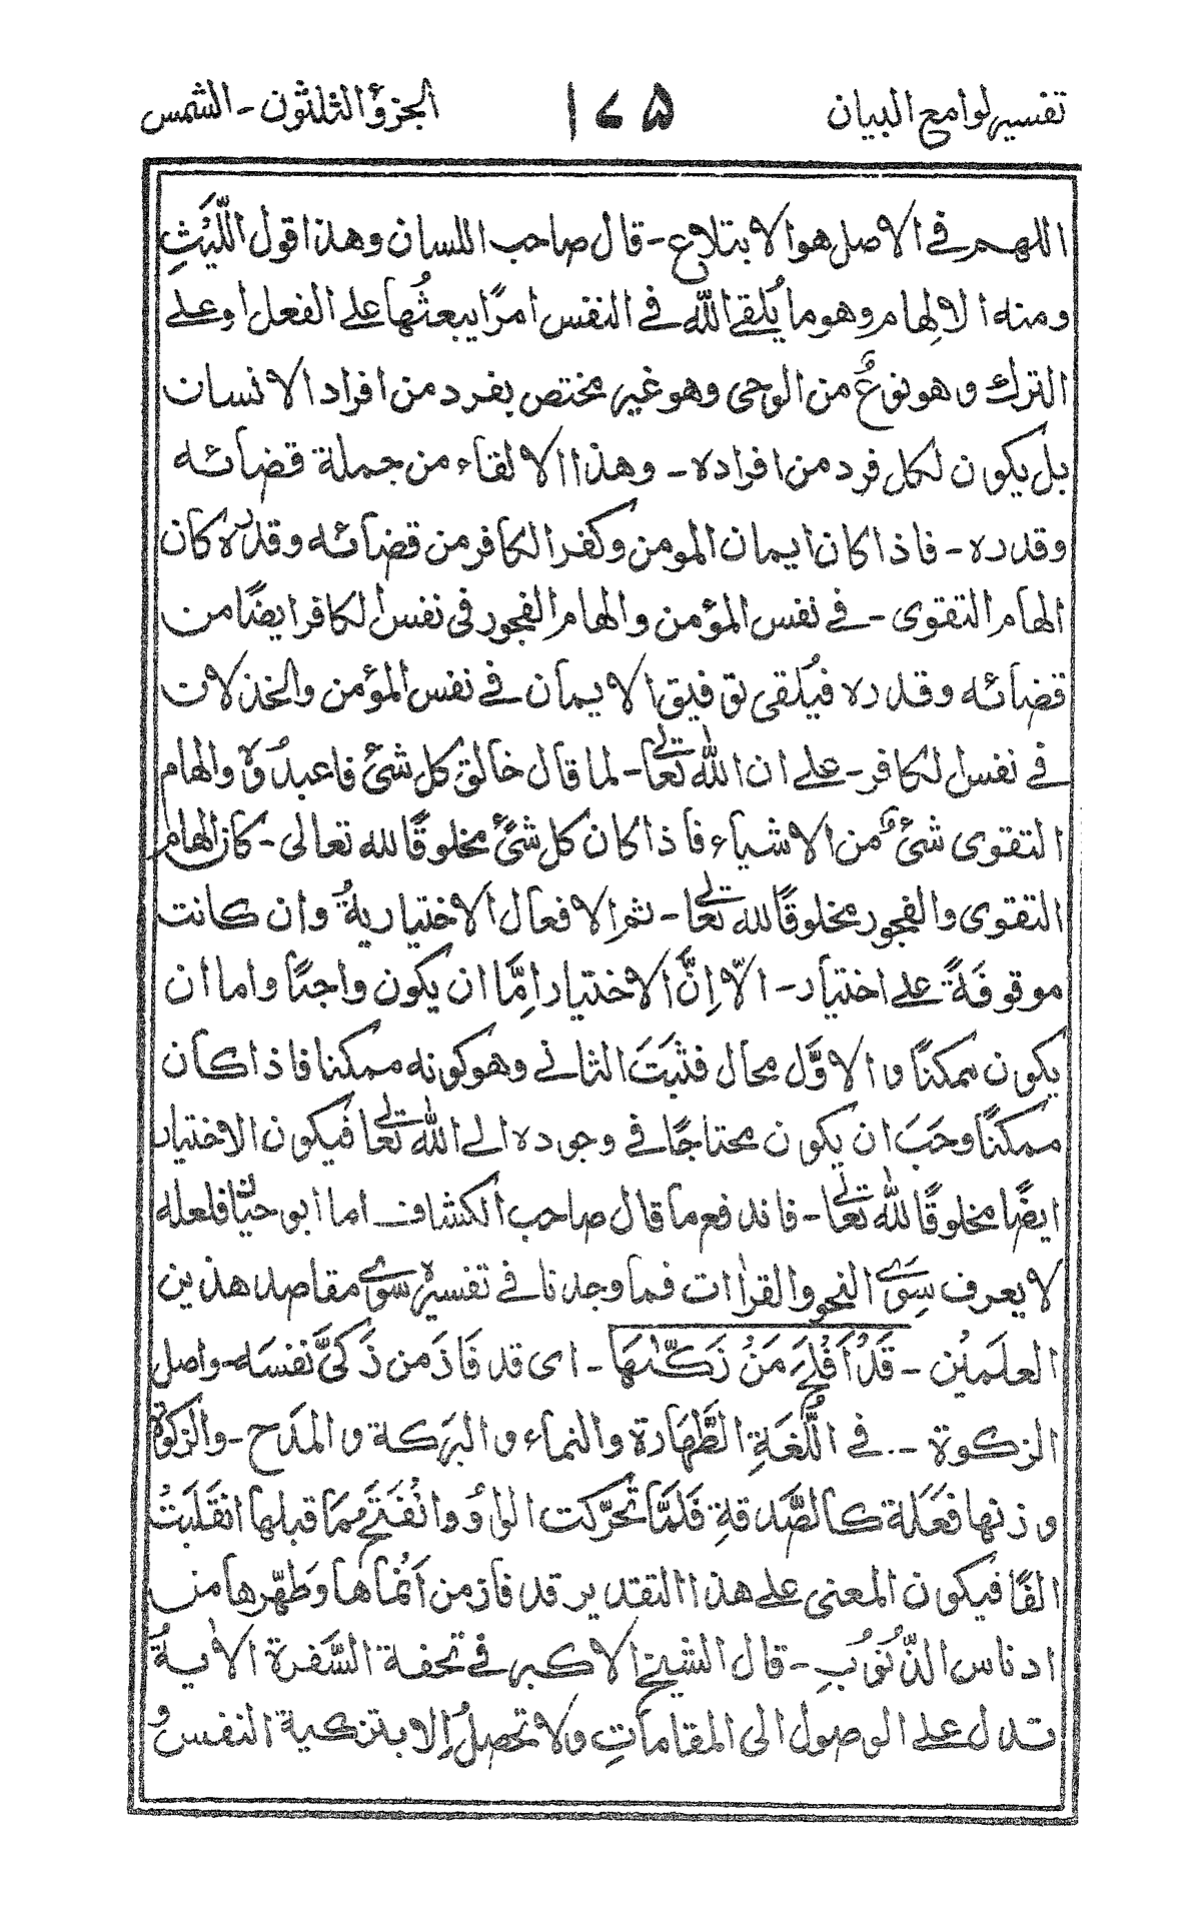 تفسير لوامع البيان ١٧٥ الجزؤ الثلثون - الشمس
اللهم في الاصل هو الابتلاع - قال صاحب اللسان وهذا قول اللَّيْثِ
ومنه الالِهام وهو ما يُلقي الله في النفس امرًا يبعثُها علے الفعل او علے
الترك وهو نوعٌ من الوحى وهو غير مختص بفرد من افراد الانسان
بل يكون لكل فرد من افراده - وهذا الالقاء من جملة قضائه
وقدره - فاذا كان ايمان المومن وكفر الكافر من قضائه وقدره كان
الهام التقوى - في نفس المؤمن والهام الفجور فى نفس الكافر ايضًا من
قضائه وقدره فيُلقى توفيق الايمان في نفس المؤمن والخذلان
في نفس الكافر - علے ان الله تعالٰے - لما قال خالق كل شئ فاعبدُوهُ والهام
التقوى شئٌ من الاشياء فاذا كان كل شئ مخلوقًا لله تعالى - كان الهام
التقوى والفجور مخلوقًا لله تعالٰے - ثم الافعال الاختياريةُ وان كانت
موقوفَةً علے اختيار - الّا اِنَّ الاختيار اِمَّا ان يكون واجبًا واما ان
يكون ممكنًا و الاوّل محال فثبَتَ الثاني وهو كونه ممكنا فاذا كان
ممكنًا وجَبَ ان يكون محتاجًا في وجوده الے الله تعالٰے فيكون الاختيار
ايضًا مخلوقًا لله تعالٰے - فاندفع ما قال صاحب الكشاف اما ابو حيّان فلعله
لا يعرف سِوَے النحو والقراات فما وجدنا في تفسيره سِوَے مقاصد هذين
العلمَيْن - قَدْ اَفْلَحَ مَنْ زَكّٰىهَا - اى قد فَازَ من زَكىَّ نفسَه - واصل
الزكوة - في اللُّغَةِ الطَّهَارة والنماء و البركة و المَدَح - والزكوة
وزنها فَعَلَة كالصَّدقةِ فَلَمَّا تَحَرَّكت الواوُ وانْفَتَحَ مَا قبلها انقَلَبَتْ
الفًا فيكون المعنى علے هذا التقدير قد فاز من اَنْمَاها وَطهّرها من
ادناس الذّنُوْبِ - قال الشيخ الاكبر في تحفة السَّفرة الاٰيةُ
تدل علے الوصول الى المقاماتِ ولا تحصلُ اِلا بتزكية النفس و